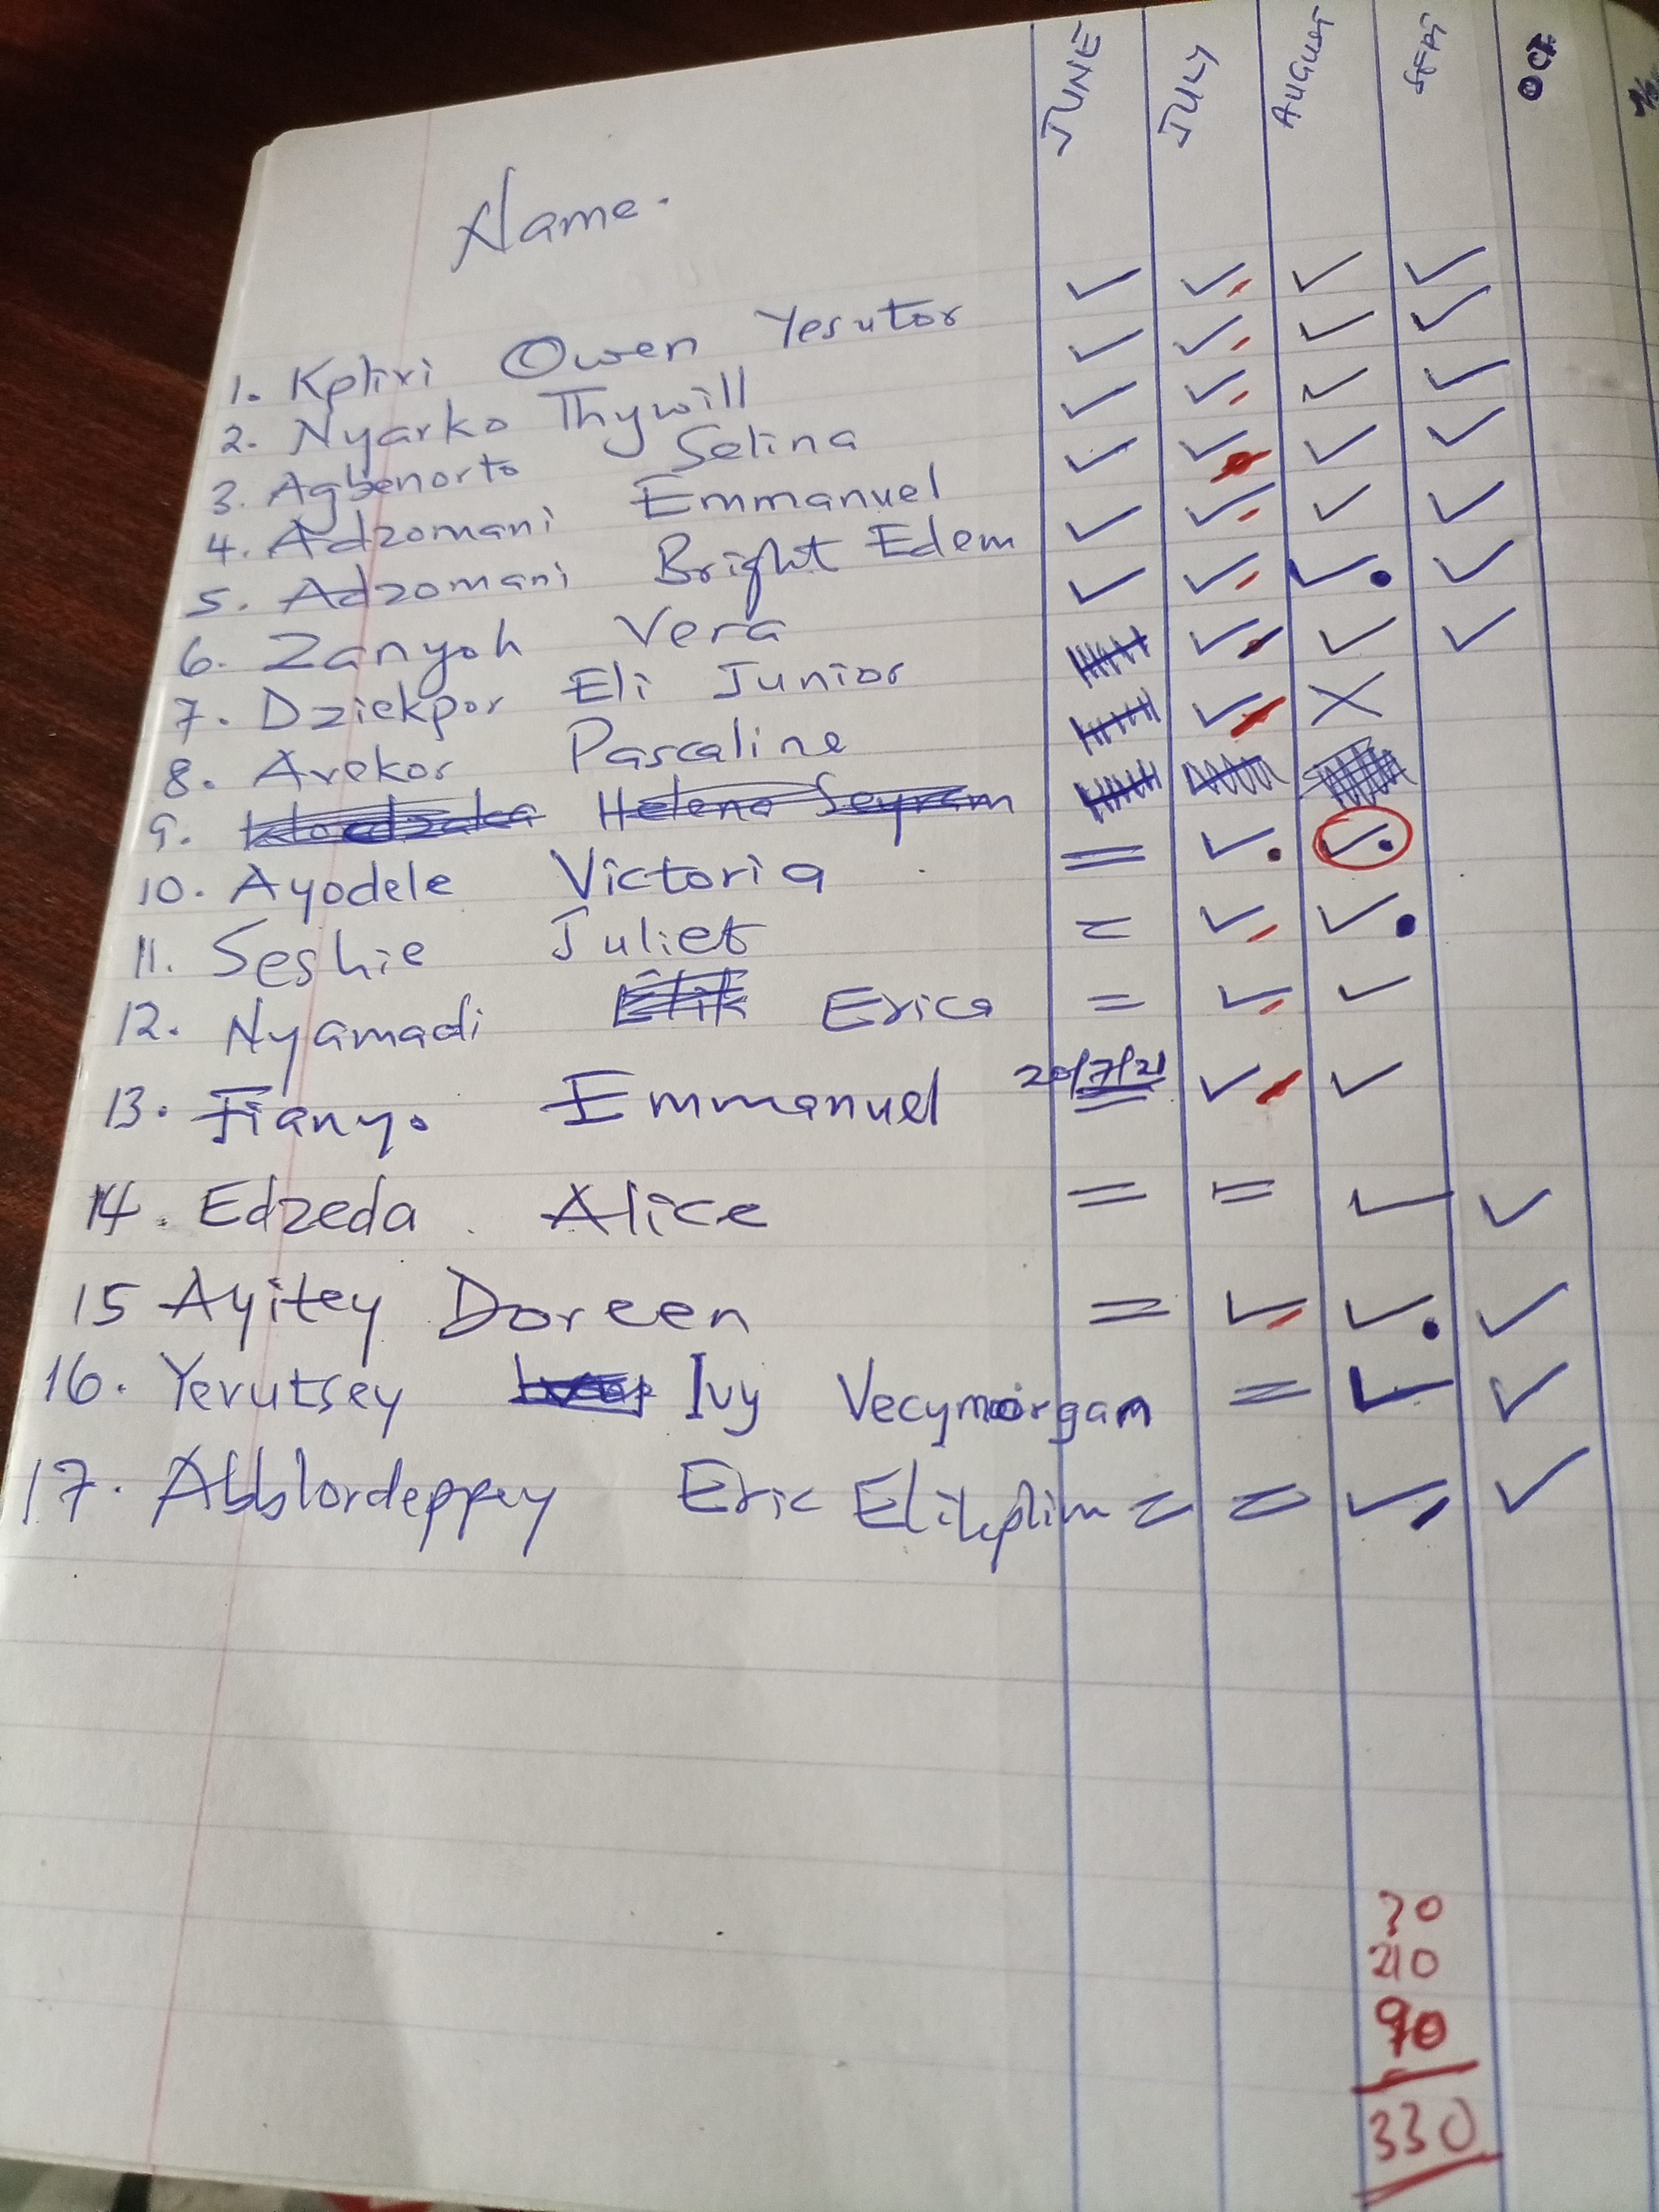 JUNE JULY AUGUST SEPT OCT
Name.
1. Kpliri Owen Yesutor ✓ ✓ ✓ ✓
2. Nyarko Thywill ✓ ✓ ✓ ✓
3. Agbenorto Selina ✓ ✓ ✓ ✓
4. Adzomani Emmanuel ✓ ✓ ✓ ✓
5. Adzomani Bright Edem ✓ ✓ ✓ ✓
6. Zanyoh Vera ✓ ✓ ✓ ✓
7. Dziekpor Eli Junior ✓ ✓ ✓
8. Avekor Pascaline ✓ X
9. Helena Seyram
10. Ayodele Victoria = ✓ ✓
11. Seshie Juliet = ✓ ✓
12. Nyamadi Erica = ✓ ✓
13. Fianyo Emmanuel 20/7/21 = ✓ ✓
14. Edzeda Alice = = ✓ ✓
15 Ayitey Doreen = ✓ ✓ ✓
16. Yevutsey Ivy Vecymorgan = ✓ ✓
17. Abblordeppey Eric Elikplim = = ✓ ✓
210
90
330